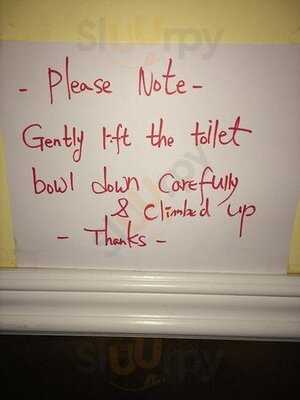 Sluurpy
- Please Note -
Gently lift the toilet
bowl down carefully
& climbed up
- Thanks -
Sluurpy